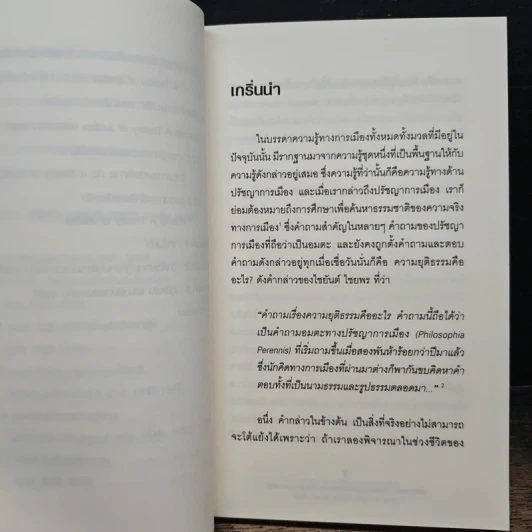 เกริ่นนำ
ในบรรดาความรู้ทางการเมืองทั้งหมดทั้งมวลที่มีอยู่ใน
ปัจจุบันนั้น มีรากฐานมาจากความรู้ชุดหนึ่งที่เป็นพื้นฐานให้กับ
ความรู้ดังกล่าวอยู่เสมอ ซึ่งความรู้ที่ว่านั้นก็คือความรู้ทางด้าน
ปรัชญาการเมือง และเมื่อเรากล่าวถึงปรัชญาการเมือง เราก็
ย่อมต้องหมายถึงการศึกษาเพื่อค้นหาธรรมชาติของความจริง
ทางการเมือง¹ ซึ่งคำถามสำคัญในหลายๆ คำถามของปรัชญา
การเมืองที่ถือว่าเป็นอมตะ และยังคงถูกตั้งคำถามและตอบ
คำถามดังกล่าวอยู่ทุกเมื่อเชื่อวันนั่นก็คือ ความยุติธรรมคือ
อะไร? ดังคำกล่าวของไชยันต์ ไชยพร ที่ว่า
"คำถามเรื่องความยุติธรรมคืออะไร คำถามนี้ถือได้ว่า
เป็นคำถามอมตะทางปรัชญาการเมือง (Philosophia
Perennis) ที่เริ่มถามขึ้นเมื่อสองพันห้าร้อยกว่าปีมาแล้ว
ซึ่งนักคิดทางการเมืองที่ผ่านมาต่างก็พากันขบคิดหาคำ
ตอบทั้งที่เป็นนามธรรมและรูปธรรมตลอดมา..." ²
อนึ่ง คำกล่าวในข้างต้น เป็นสิ่งที่จริงอย่างไม่สามารถ
จะโต้แย้งได้เพราะว่า ถ้าเราลองพิจารณาในช่วงชีวิตของ